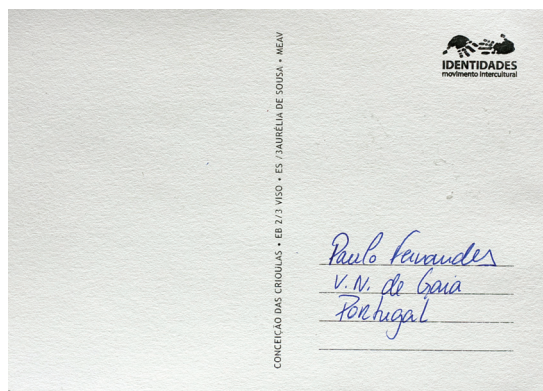 IDENTIDADES
movimento intercultural
CONCEIÇÃO DAS CRIOULAS • EB 2/3 VISO • ES /3AURÉLIA DE SOUSA • MEAV
Paulo Fernandes
V. N. de Gaia
Portugal